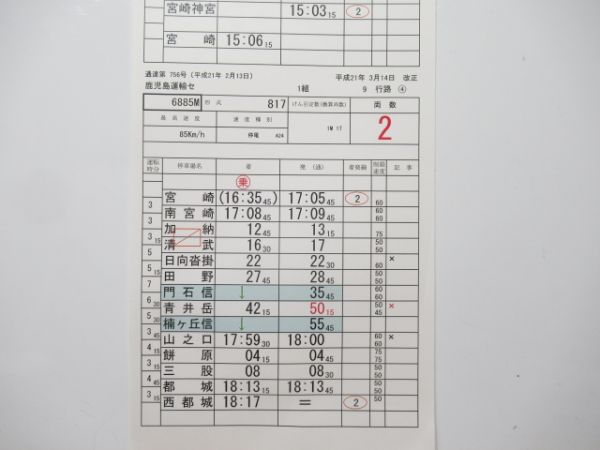 宮崎神宮 15:03 15 ②
宮崎 15:06 15
通達第 756号 (平成21年 2月13日) 平成21年 3月14日 改正
鹿児島運輸セ 1組 9 行路 ④
6885M 形式 817 けん引定数(換算両数) 両数
最高速度 速度種別 1M 1T 2
85Km/h 停電 A24
運転時分 停車場名 着 発 (通) 着発線 制限速度 記事
乗
宮崎 (16:35 45) 17:05 45 ② 60
3 南宮崎 17:08 45 17:09 45 60 60
3 加納 12 45 13 15 75
3 15 清武 16 30 17 50 50
5 日向沓掛 22 22 30 60 ×
5 15 田野 27 45 28 45 60 50
7 門石信 ↓ 35 45
6 30 青井岳 42 15 50 15 50 45 ×
5 30 楠ヶ丘信 ↓ 55 45
3 45 山之口 17:59 30 18:00 60 60 ×
4 15 餅原 04 15 04 45 75 75
3 15 三股 08 08 30 50 50
4 45 都城 18:13 15 18:13 45 50 50
3 15 西都城 18:17 = ② 50